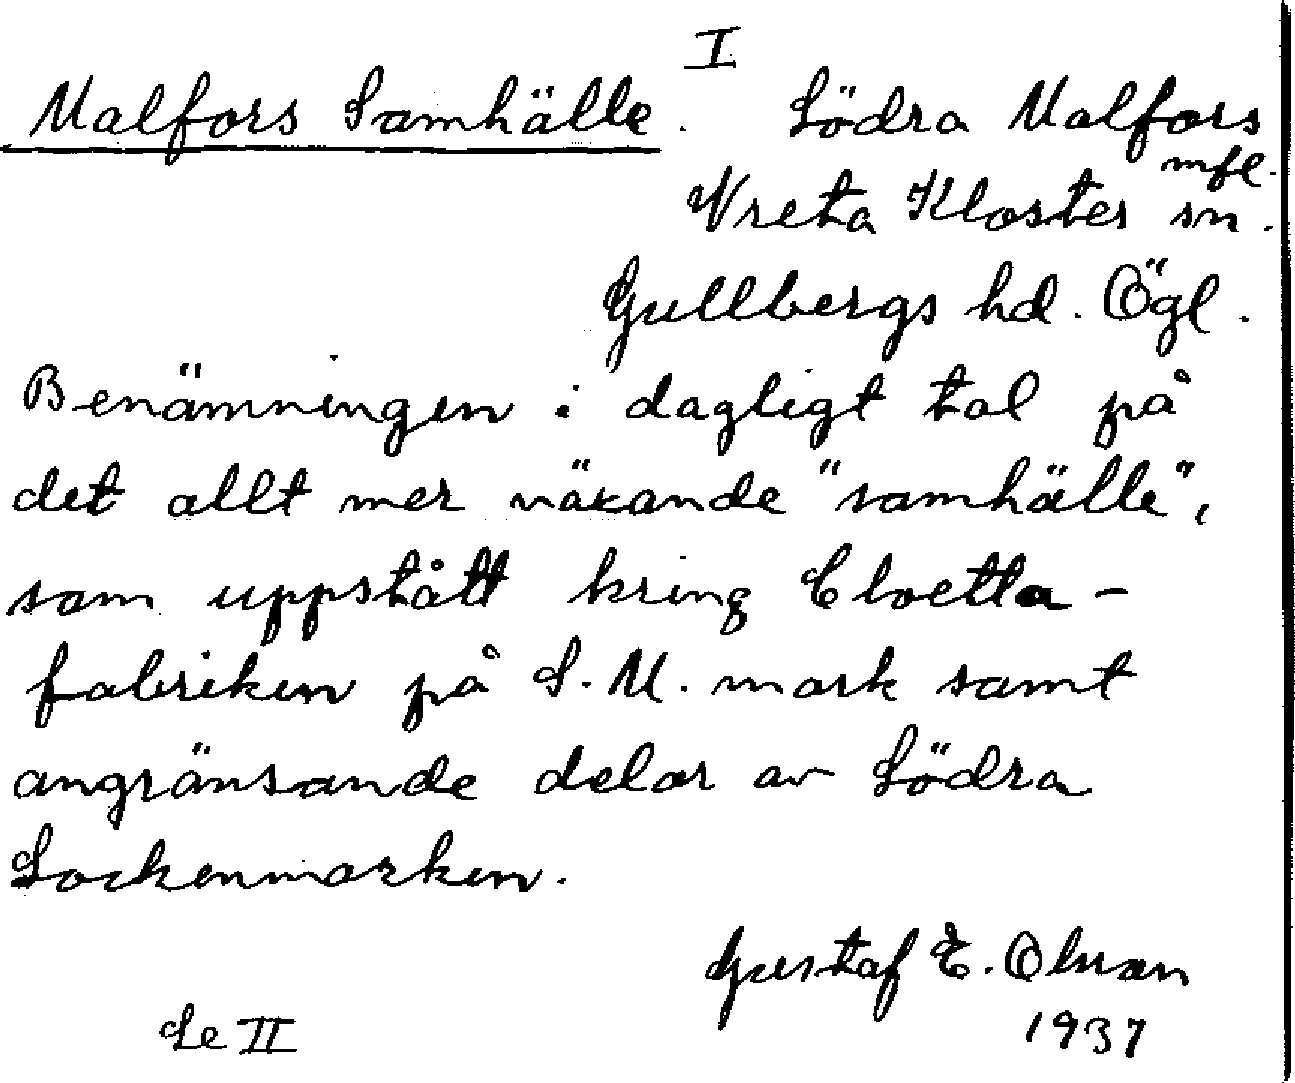 I
Malfors Samhälle. Södra Malfors
mfl.
Vreta Kloster sn.
Gullbergs hd. Ögl.
Benämningen i dagligt tal på
det allt mer växande "samhälle",
som uppstått kring Cloetta-
fabriken på S. M. mark samt
angränsande delar av Södra
Sockenmarken.
Gustaf E. Olsson
1937
Se II